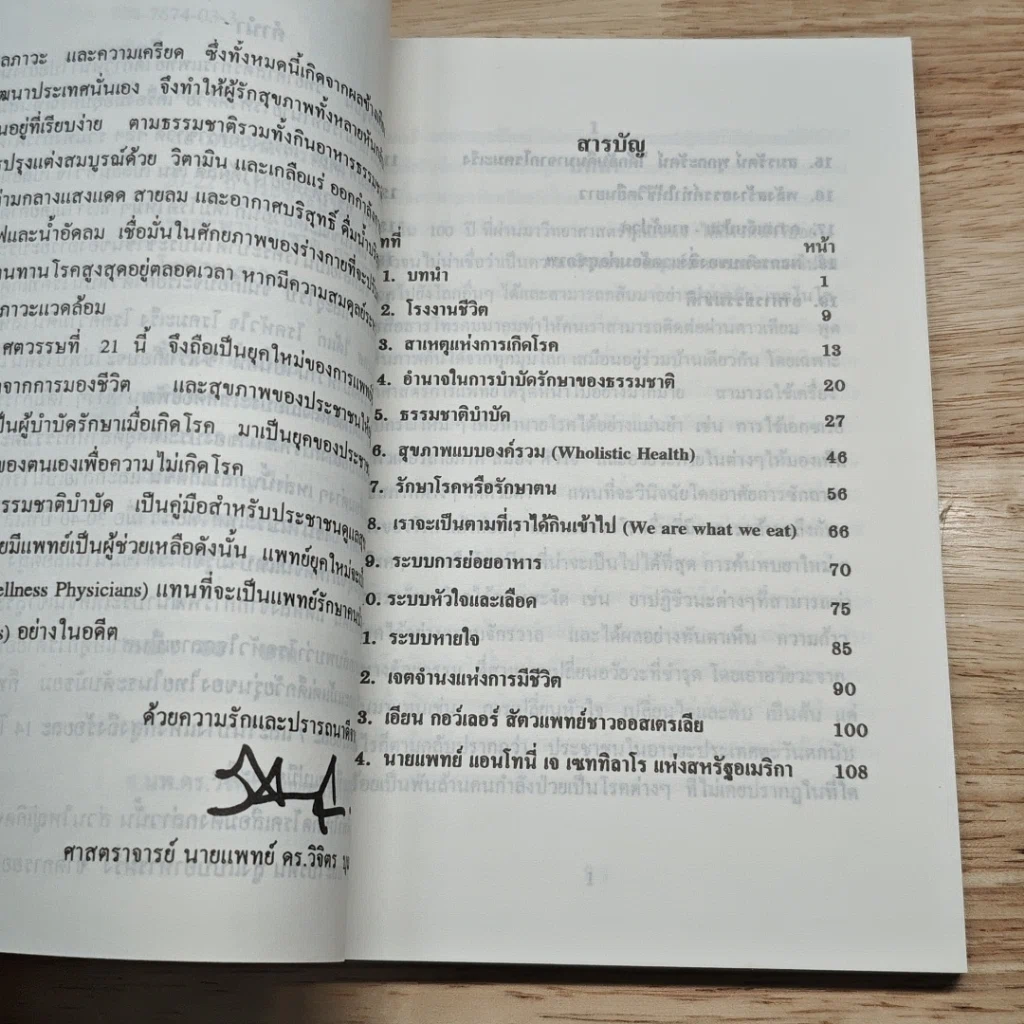 ลภาวะ และความเครียด ซึ่งทั้งหมดนี้เกิดจากผลข้าง
ฒนาประเทศนั่นเอง จึงทำให้ผู้รักสุขภาพทั้งหลายหัน
นอยู่ที่เรียบง่าย ตามธรรมชาติรวมทั้งกินอาหารธรรม
รปรุงแต่งสมบูรณ์ด้วย วิตามิน และเกลือแร่ ออกกำลัง
ท่ามกลางแสงแดด สายลม และอากาศบริสุทธิ์ ดื่มน้ำ
ฟและน้ำอัดลม เชื่อมั่นในศักยภาพของร่างกายที่จะ
านทานโรคสูงสุดอยู่ตลอดเวลา หากมีความสมดุลย์
ภาวะแวดล้อม
ศตวรรษที่ 21 นี้ จึงถือเป็นยุคใหม่ของการแพทย์
จากการมองชีวิต และสุขภาพของประชาชน
ป็นผู้บำบัดรักษาเมื่อเกิดโรค มาเป็นยุคของ
ของตนเองเพื่อความไม่เกิดโรค
รรมชาติบำบัด เป็นคู่มือสำหรับประชาชนดูแล
ยมีแพทย์เป็นผู้ช่วยเหลือดังนั้น แพทย์ยุคใหม่
ellness Physicians) แทนที่จะเป็นแพทย์รักษา
s) อย่างในอดีต
ด้วยความรักและปรารถนาดี
ศาสตราจารย์ นายแพทย์ ดร.วิจิตร
สารบัญ
ทที่ หน้า
1. บทนำ 1
2. โรงงานชีวิต 9
3. สาเหตุแห่งการเกิดโรค 13
4. อำนาจในการบำบัดรักษาของธรรมชาติ 20
5. ธรรมชาติบำบัด 27
6. สุขภาพแบบองค์รวม (Wholistic Health) 46
7. รักษาโรคหรือรักษาตน 56
8. เราจะเป็นตามที่เราได้กินเข้าไป (We are what we eat) 66
9. ระบบการย่อยอาหาร 70
0. ระบบหัวใจและเลือด 75
1. ระบบหายใจ 85
2. เจตจำนงแห่งการมีชีวิต 90
3. เอียน กอว์เลอร์ สัตวแพทย์ชาวออสเตรเลีย 100
4. นายแพทย์ แอนโทนี่ เจ เซททิลาโร แห่งสหรัฐอเมริกา 108